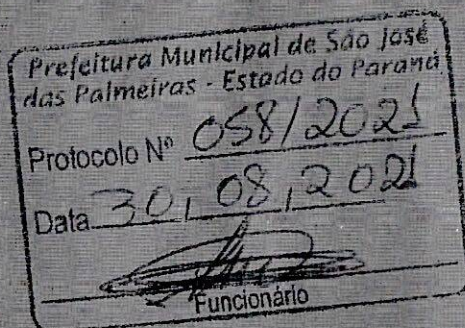 Prefeitura Municipal de São José
das Palmeiras - Estado do Paraná
Protocolo Nº 058/2021
Data 30, 08, 2021
Funcionário